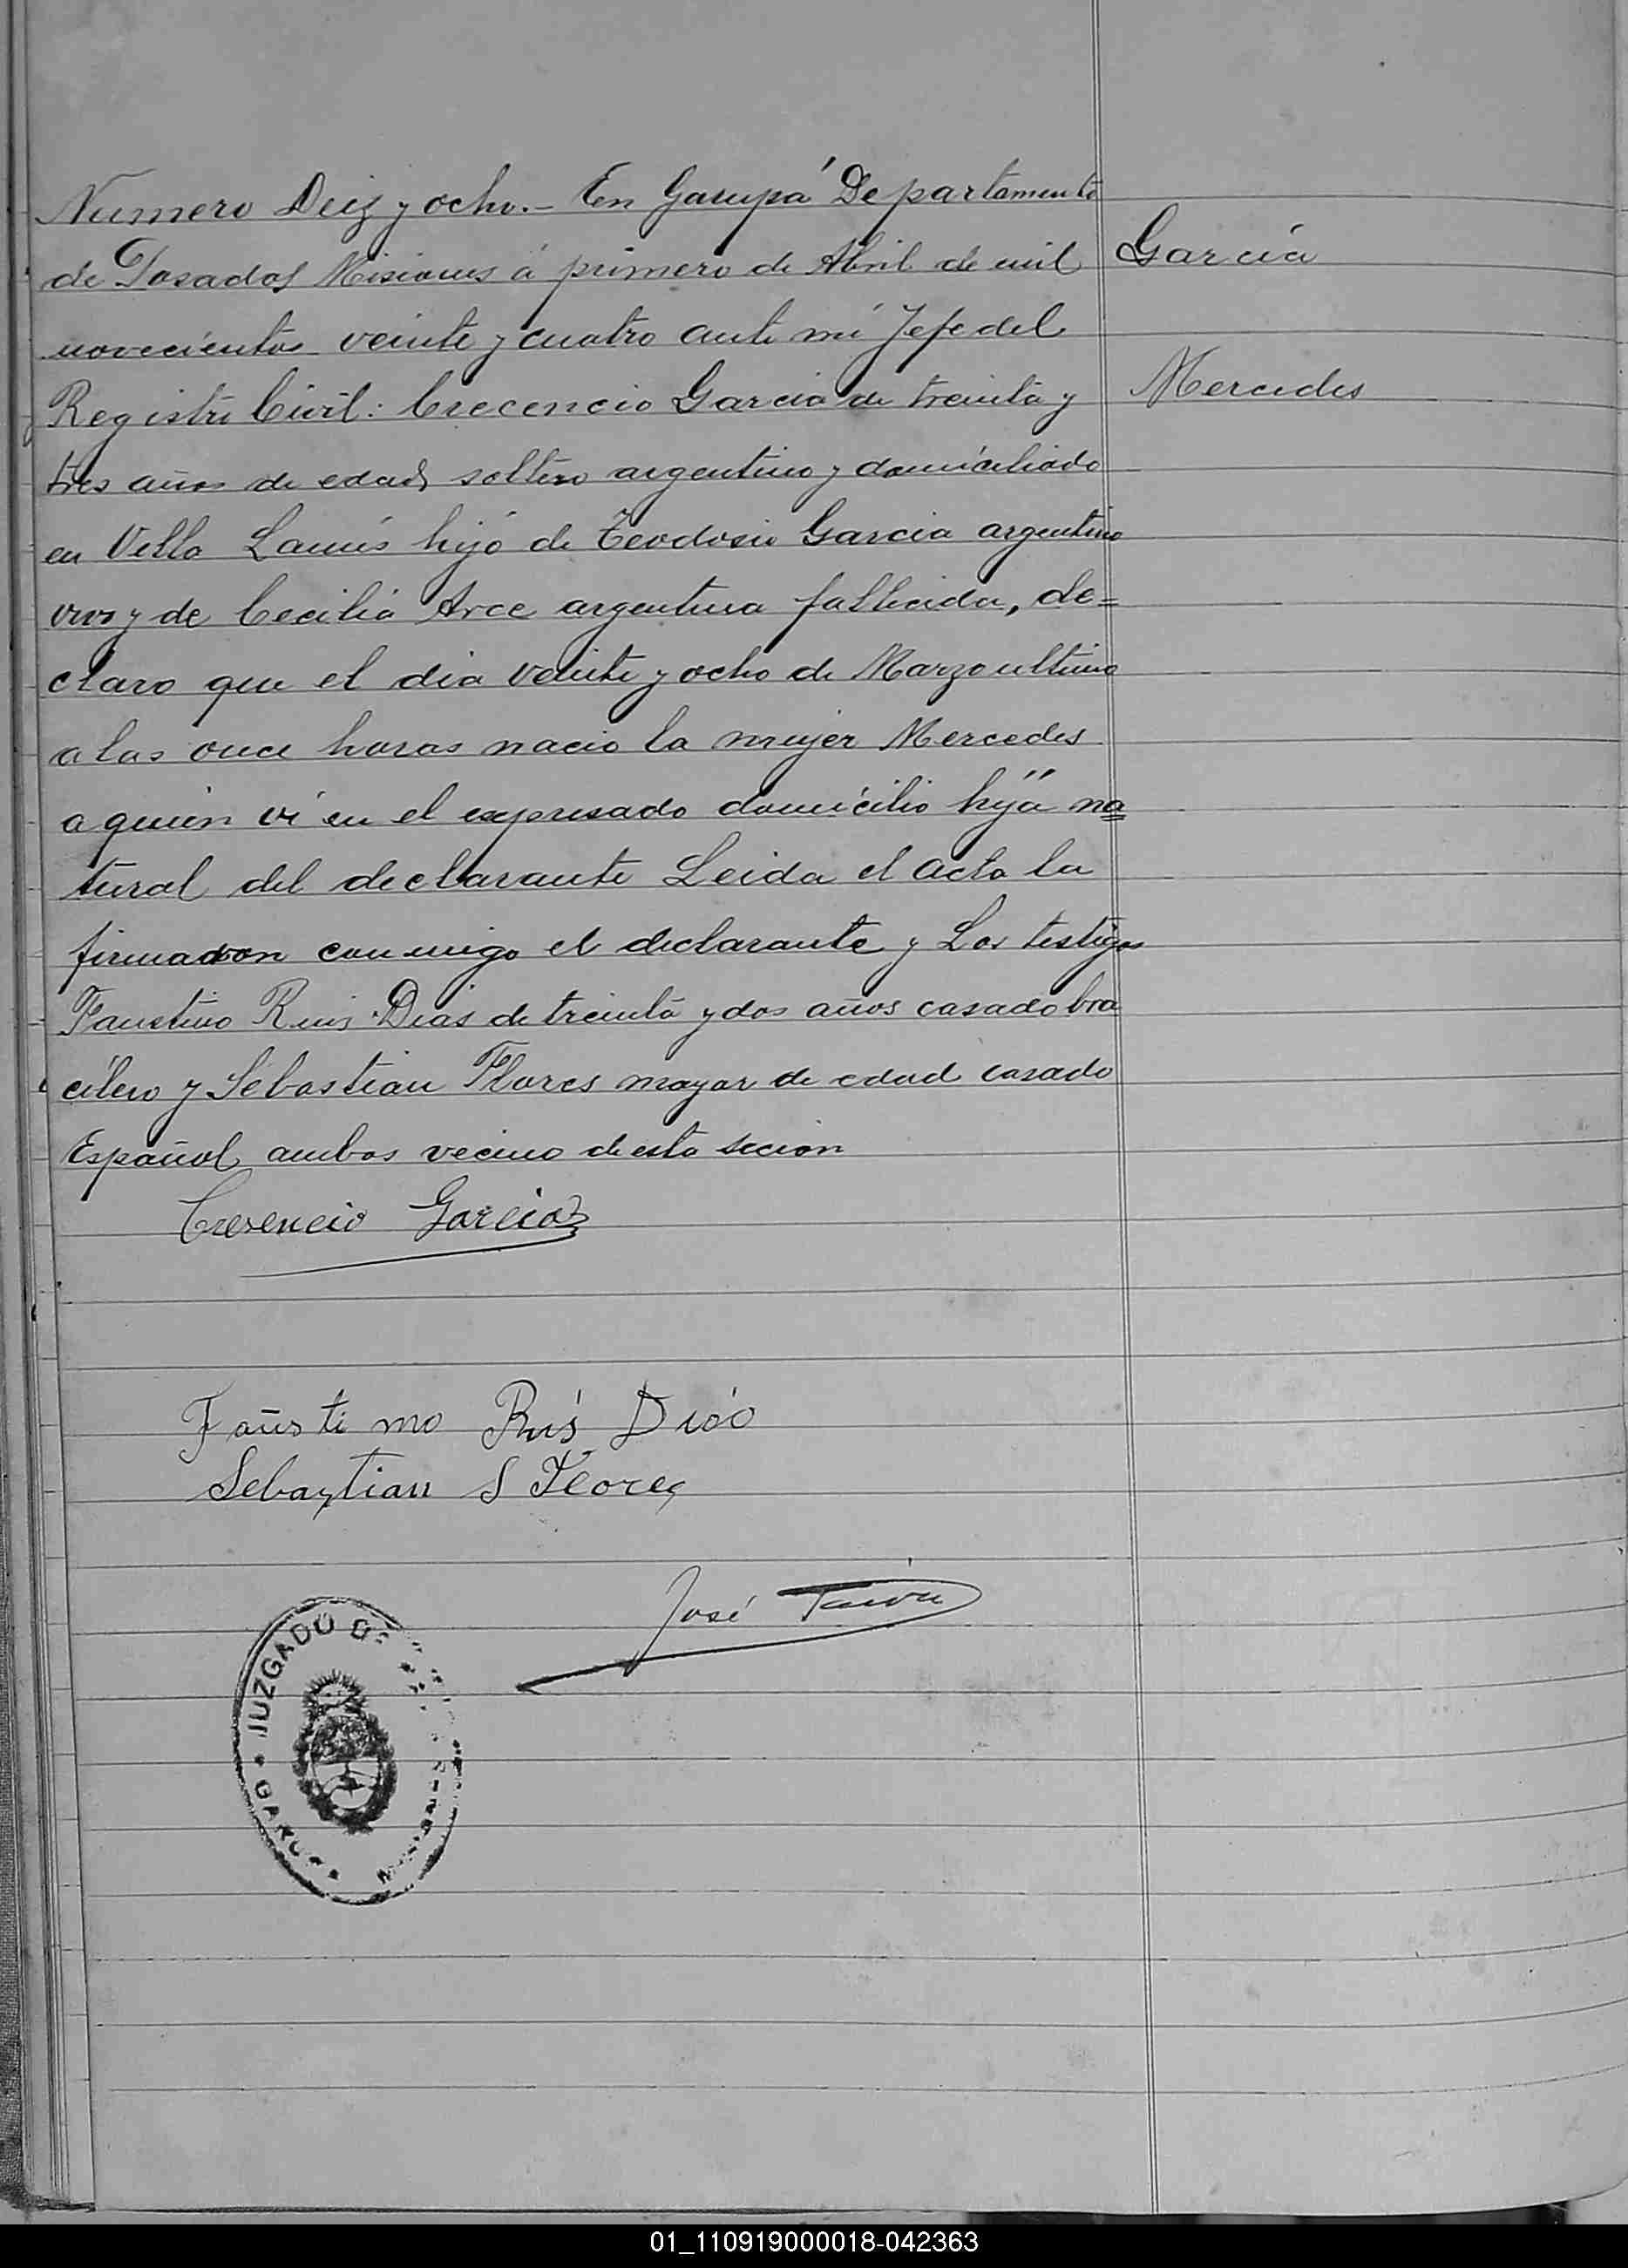 Numero Deiz y ocho.- En Garupá Departamento
de Posadas Misiones á primero de Abril de mil
novecientos veinte y cuatro ante mi Jefe del
Registro Civil: Crecencio Garcia de treinta y
tres años de edad soltero argentino y domiciliado
en Villa Lanús hijo de Teodosio Garcia argentino
vivo y de Cecilia Arce argentina fallecida, de=
claro que el dia veinte y ocho de Marzo ultimo
a las once horas nacio la mujer Mercedes
a quien vi en el expresado domicilio hija na
tural del declarante Leida el acta la
firmaron conmigo el declarante y Los testigos
Faustino Ruis Dias de treinta y dos años casado bra
cilero y Sebastian Flores mayor de edad casado
Español ambos vecino de esta secion
Garcia
Mercedes
Cresencio Garcia
Faustino Ruis
Sebastian S Flores
José
JUZGADO DE
GARUPA
MISIONES
01_110919000018-042363